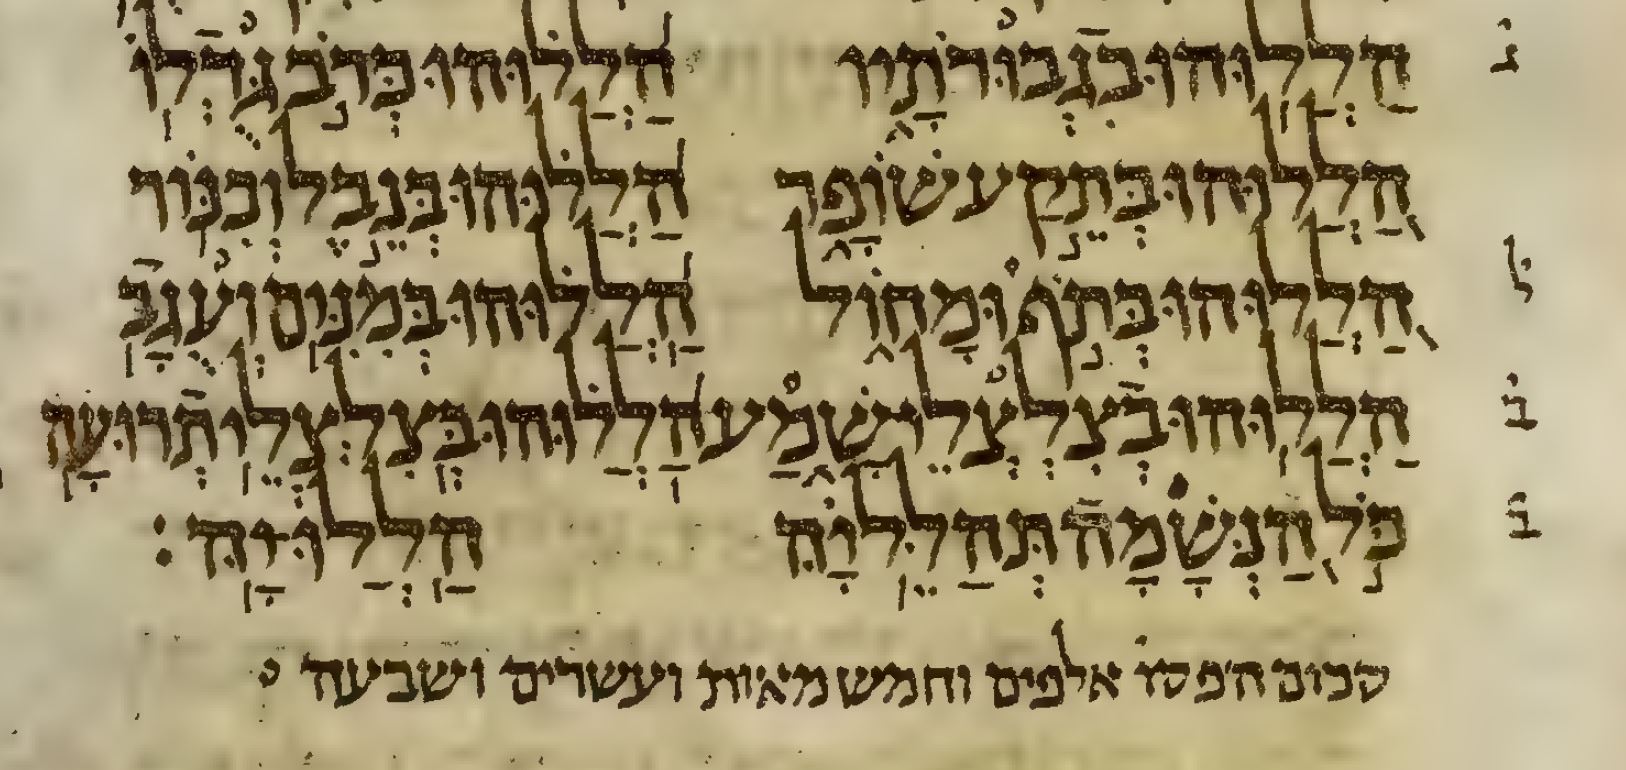 ג̇ הַלְלוּהוּ בִגְבוּרֹתָיו הַלְלוּהוּ כְּרֹב גֻּדְלוֹ
הַלְלוּהוּ בְּתֵקַע שׁוֹפָר הַלְלוּהוּ בְּנֵבֶל וְכִנּוֹר
ל̇ הַלְלוּהוּ בְּתֹף וּמָחוֹל הַלְלוּהוּ בְּמִנִּים וְעֻגָב
ב̇ הַלְלוּהוּ בְצִלְצְלֵי שָׁמַע הַלְלוּהוּ בְּצִלְצְלֵי תְרוּעָה
ב̇ כֹּל הַנְּשָׁמָה תְּהַלֵּל יָהּ הַלְלוּ יָהּ:
סכום הפסו̇ אלפים וחמש מאות ועשרים ושבעה